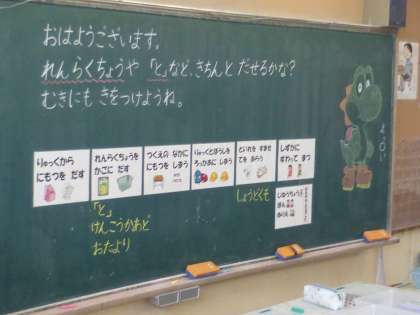 おはようございます。
れんらくちょうや 「と」など、きちんと だせるかな?
むきにも きをつけようね。
りゅっくから
にもつを だす
れんらくちょうを
かごに だす
つくえの なかに
にもつを しまう
りゅっくとぼうしを
ろっかあに しまう
といれを すませ
てを あらう
しずかに
すわって まつ
「と」
けんこうかあど
おたより
しょうどくも
じゆうちょう
ほん
ぬりえ